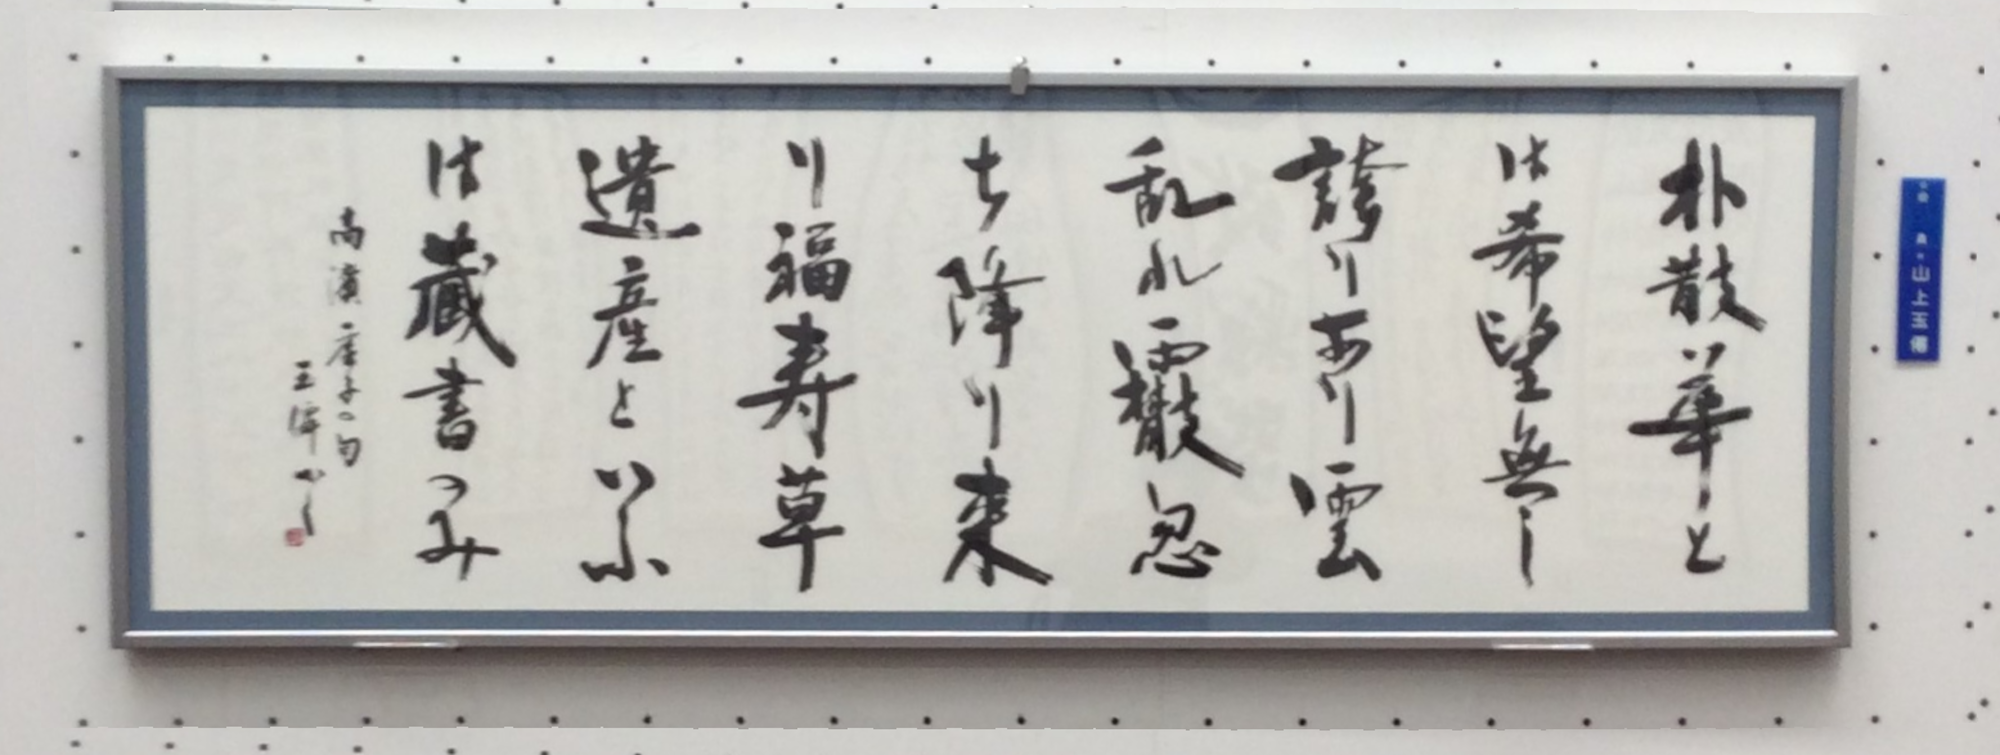 朴散華と
は希望無し
誇りあり雲
乱れ霰忽
ち降り来
り福寿草
遺産といふ
は蔵書のみ
高濱虚子の句
玉傳かく
山上玉傳